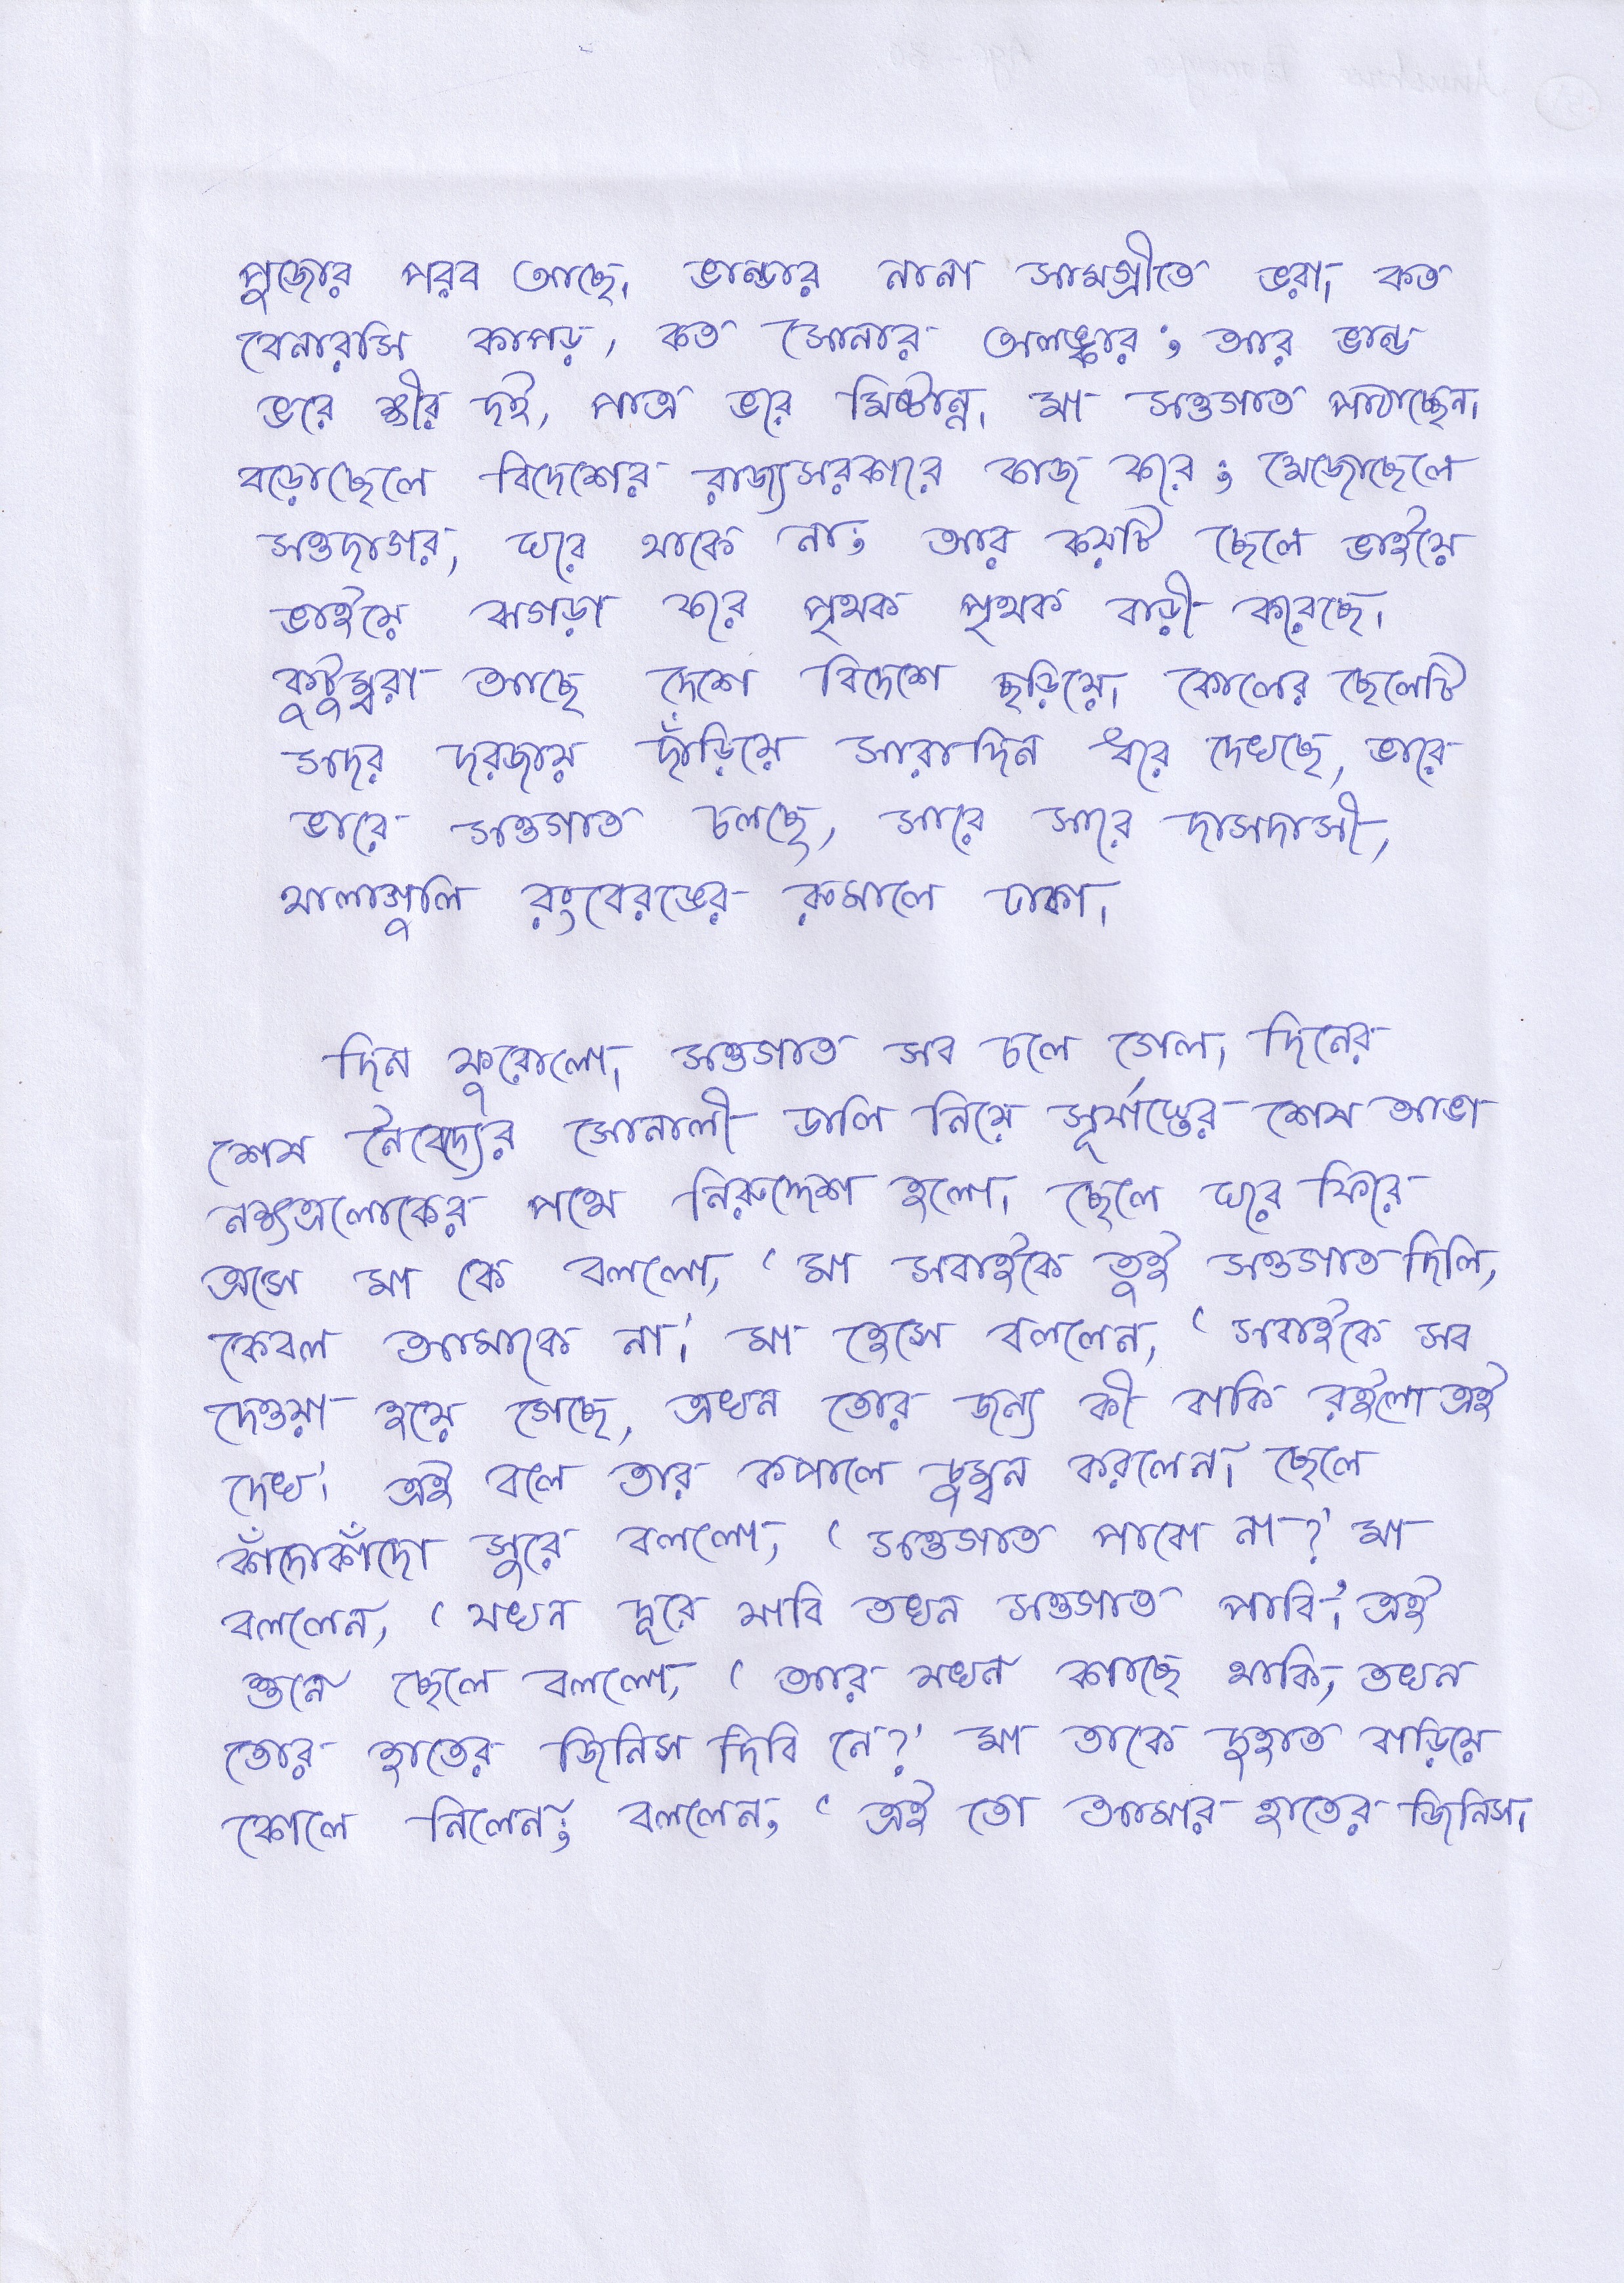 পুজোর পরব আছে। ভান্ডার নানা সামগ্রীতে ভরা। কত
বেনারসি কাপড়, কত সোনার অলঙ্কার; আর ভান্ড
ভরে ক্ষীর দই, পাত্র ভরে মিষ্টান্ন। মা সওগাত পাঠাচ্ছেন।
বড়োছেলে বিদেশের রাজ্যসরকারে কাজ করে; মেজোছেলে
সওদাগর, ঘরে থাকে না; আর কয়টি ছেলে ভাইয়ে
ভাইয়ে ঝগড়া করে পৃথক পৃথক বাড়ী করেছে।
কুটুম্বরা আছে দেশে বিদেশে ছড়িয়ে। কোলের ছেলেটি
সদর দরজায় দাঁড়িয়ে সারাদিন ধরে দেখছে, ভারে
ভারে সওগাত চলছে, সারে সারে দাসদাসী,
থালাগুলি রংবেরঙের রুমালে ঢাকা।
দিন ফুরোলো। সওগাত সব চলে গেল। দিনের
শেষ নৈবেদ্যের সোনালী ডালি নিয়ে সূর্যাস্তের শেষ আভা
নক্ষত্রলোকের পথে নিরুদ্দেশ হলো। ছেলে ঘরে ফিরে
এসে মা কে বললো, ‘মা সবাইকে তুই সওগাত দিলি,
কেবল আমাকে না।’ মা হেসে বললেন, ‘সবাইকে সব
দেওয়া হয়ে গেছে, এখন তোর জন্য কী বাকি রইলো এই
দেখ’। এই বলে তার কপালে চুম্বন করলেন। ছেলে
কাঁদোকাঁদো সুরে বললো, ‘সওগাত পাবো না?’ মা
বললেন, ‘যখন দূরে যাবি তখন সওগাত পাবি।’ এই
শুনে ছেলে বললো, ‘আর যখন কাছে থাকি, তখন
তোর হাতের জিনিস দিবি নে?’ মা তাকে দুহাত বাড়িয়ে
কোলে নিলেন; বললেন, ‘এই তো আমার হাতের জিনিস।